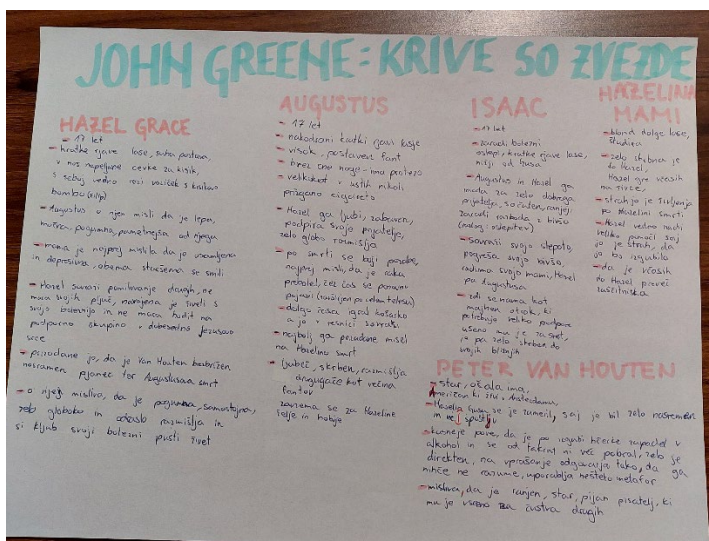 JOHN GREENE: KRIVE SO ZVEZDE
HAZEL GRACE
- 17 let
- kratke rjave lase, suha postava,
v nos napeljane cevke za kisik,
s seboj vedno vozi voziček s kisikovo
bombo
- Augustus o njej misli da je lepa,
pogumna, pametnejša od njega
- mama je najprej mislila da je osamljena
in depresivna, obema staršema se smili
- Hazel sovraži pomilovanje drugih, ne
mara svojih pljuč, navajena je živeti s
svojo boleznijo in ne mara hoditi na
podporno skupino v dobesedno Jezusovo
srce
- prizadane jo, da je Van Houten brezbrižen
nesramen pijanec ter Augustusova smrt
- o njej misliva, da je pogumna, samostojna,
zelo globoko in odraslo razmišlja in
si kljub svoji bolezni pusti živet
AUGUSTUS
- 17 let
- kratki rjavi lasje
- visok, postaven fant
- brez ene noge - ima protezo
- velikokrat v ustih nikoli
prižgano cigareto
- Hazel ga ljubi, zabaven,
podpira svoje prijatelje,
zelo globoko razmišlja
- po smrti se boji pozabe,
najprej misli, da je raka
prebolel, čez čas se ponovno
pojavi
- dolgo časa igral košarko
a jo v resnici sovraži
- najbolj ga prizadane misel
na Hazelino smrt
- ljubeč, skrben, razmišlja
drugače kot večina
fantov
zavzema se za Hazeline
želje in hobije
ISAAC
- 17 let
- zaradi bolezni
oslepi, kratke rjave lase,
nižji od Gusa
- Augustus in Hazel ga
imata za zelo dobrega
prijatelja, sočuten, ranjen
zaradi razhoda z bivšo
- sovraži svojo slepoto,
pogreša svojo bivšo,
rad ima svojo mami, Hazel
pa Augustusa
- zdi se nama kot
majhen otrok, ki
potrebuje veliko podpore
vseeno mu je za svet,
je pa zelo skrben do
svojih bližnjih
HAZELINA
MAMI
- blond dolge lase,
študira
- zelo skrbna je
do Hazel,
Hazel gre včasih
na živce,
- strah jo je življenja
po Hazelini smrti
- Hazel vedno nudi
veliko pomoči saj
jo je strah, da
jo bo izgubila
- da je včasih
do Hazel preveč
zaščitniška
PETER VAN HOUTEN
- star, očala ima,
Američan ki živi v Amsterdamu,
- Hazel in Gusu se je zameril, saj je bil zelo nesramen
in ne
- kasneje pove, da je po izgubi hčerke zapadel v
alkohol in se od takrat ni več pobral, zelo je
direkten, na vprašanja odgovarja tako, da ga
nihče ne razume, uporablja nešteto metafor
- misliva, da je ranjen, star, pijan pisatelj, ki
mu je vseeno za čustva drugih